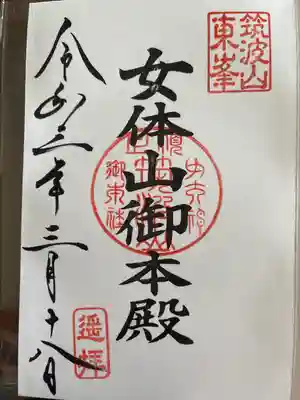 筑波山
東峯
女体山御本殿
遥拝
令和三年三月十八日